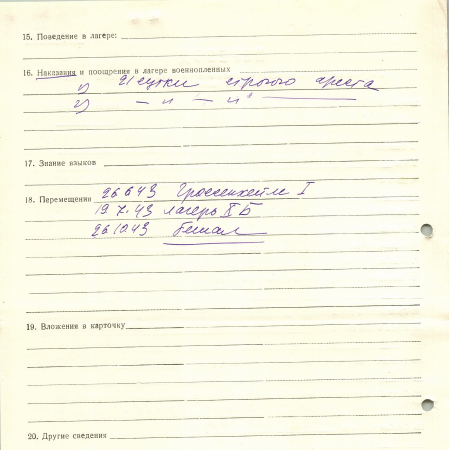 15. Поведение в лагере:
16. Наказания и поощрения в лагере военнопленных
1) 21 сутки строгого ареста
2) — „ — „
17. Знание языков
18. Перемещения 26 6 43 Гроссенхейле I
19. 7. 43 лагерь IV Б
26 10 43 бежал
19. Вложения в карточку
20. Другие сведения